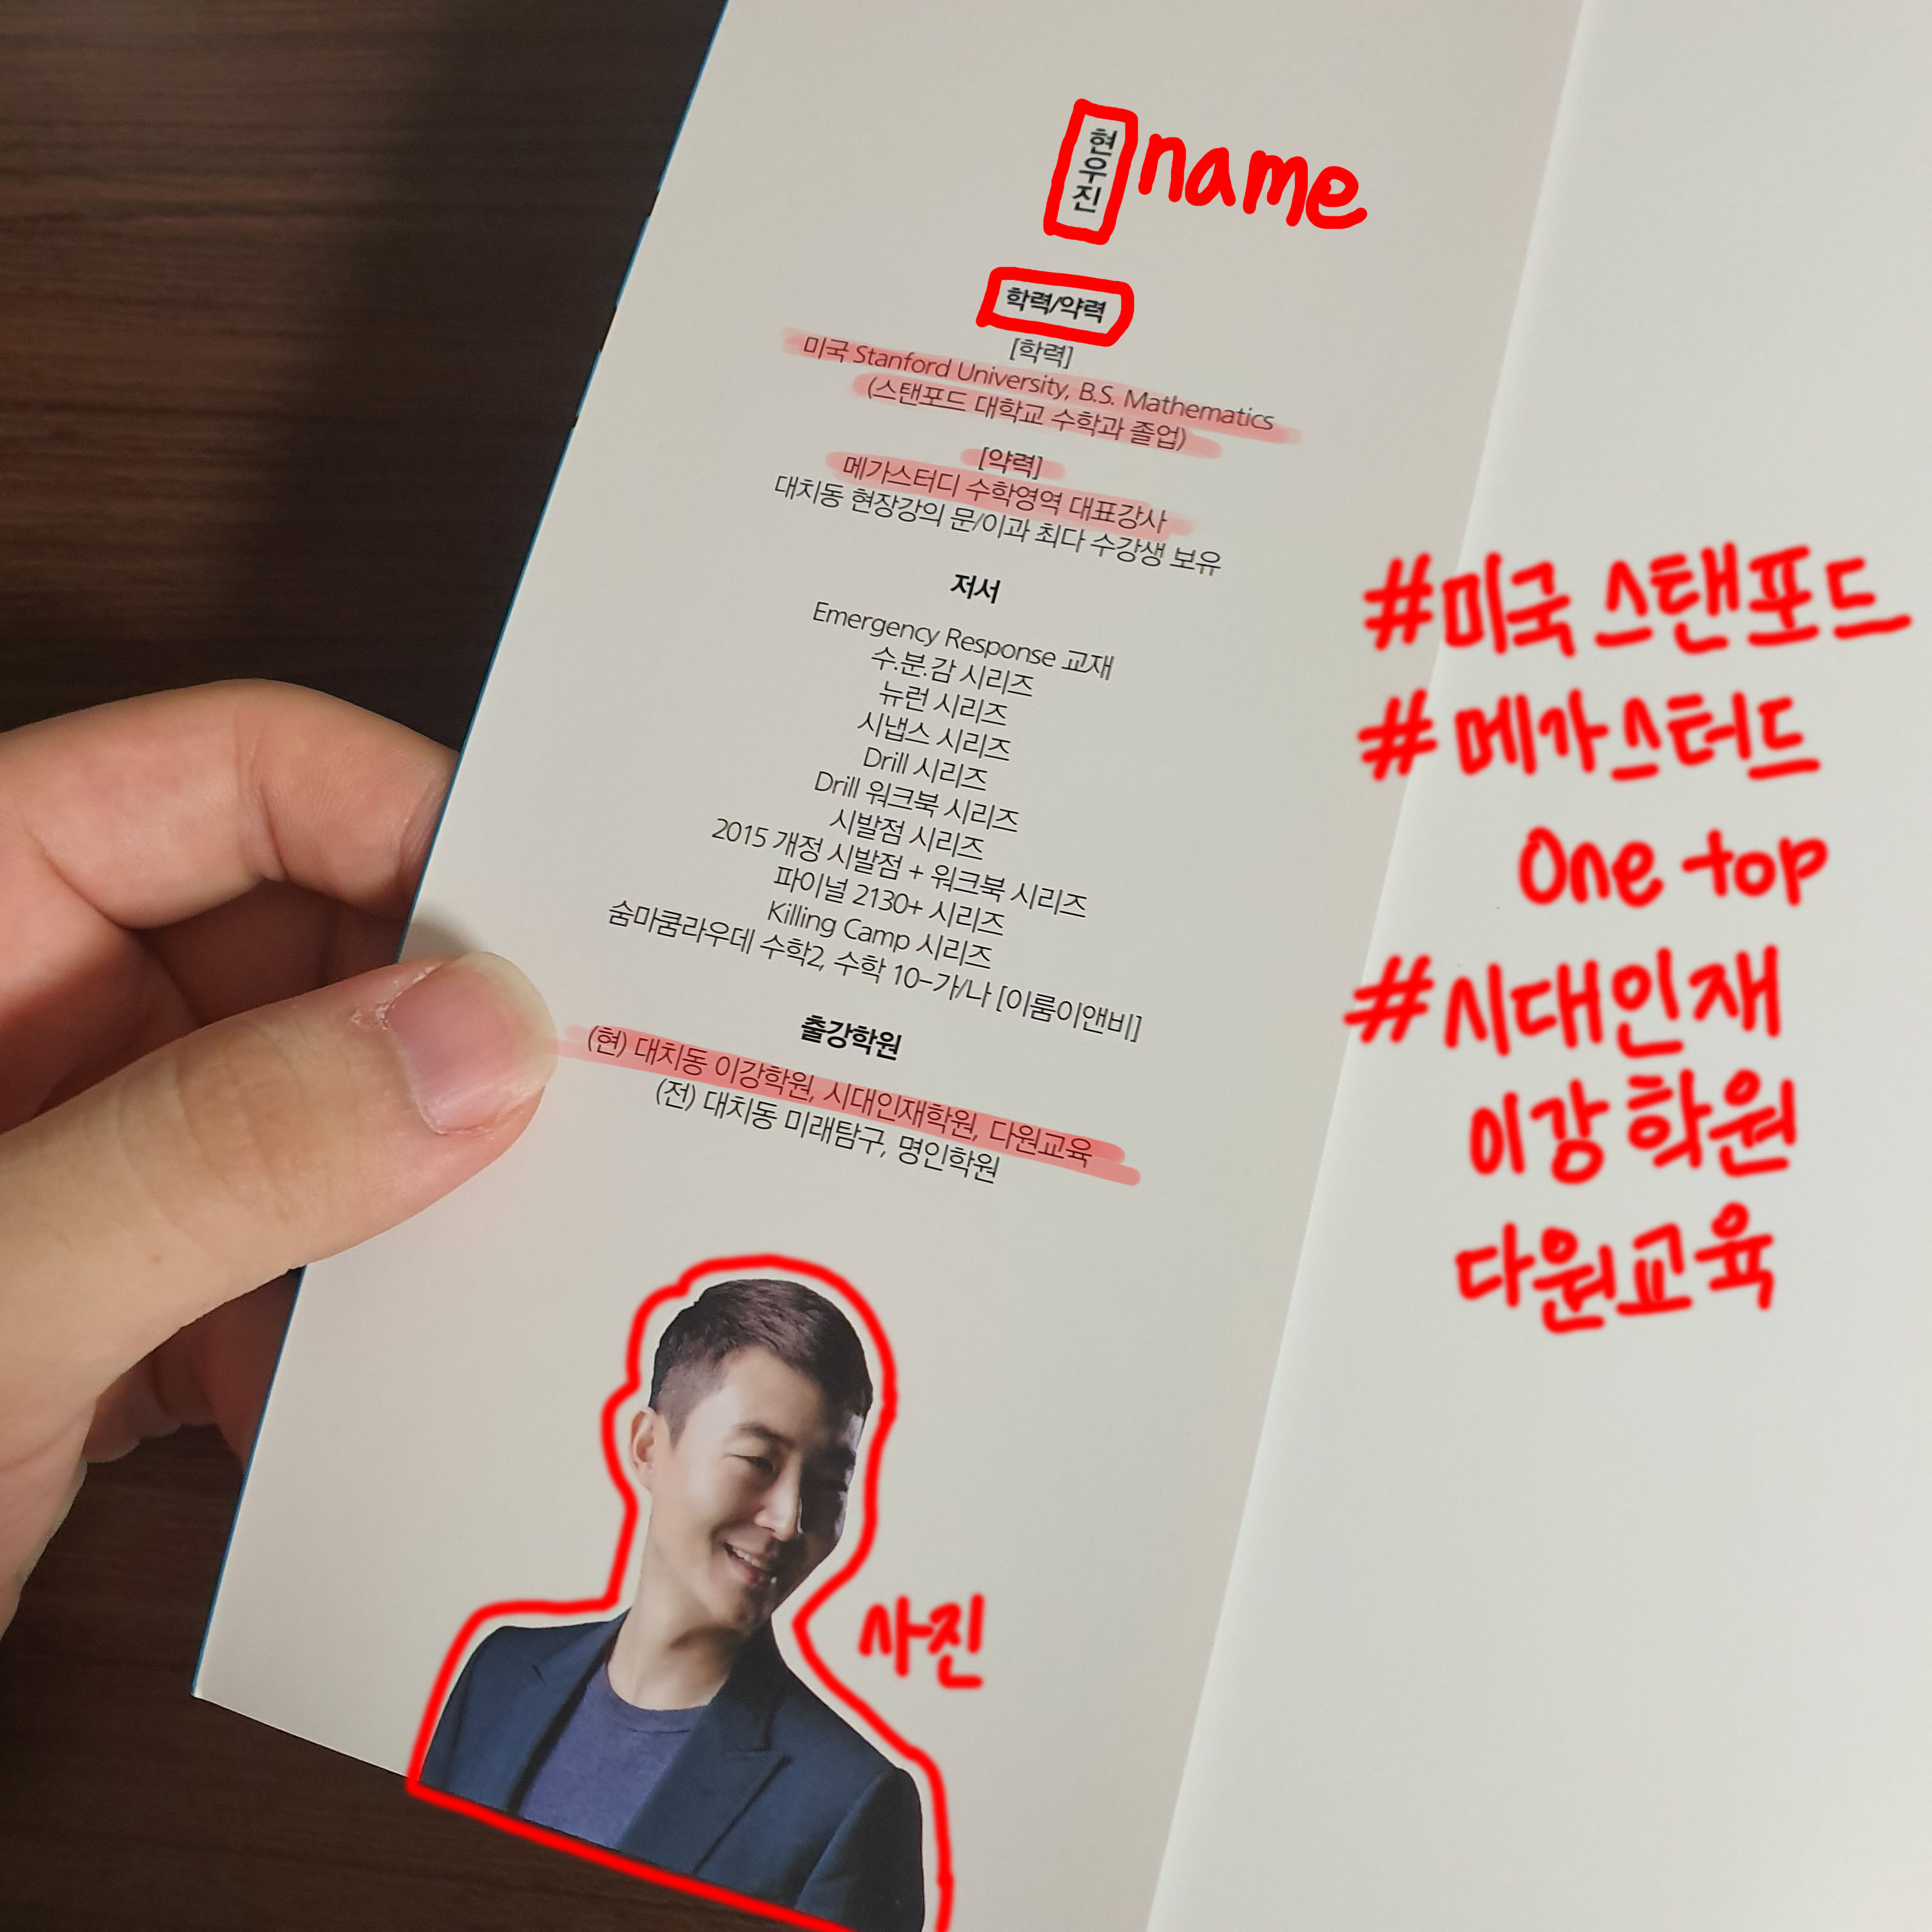 현우진
name
학력/약력
[학력]
미국 Stanford University, B.S. Mathematics
(스탠포드 대학교 수학과 졸업)
[약력]
메가스터디 수학영역 대표강사
대치동 현장강의 문/이과 최다 수강생 보유
저서
Emergency Response 교재
수.분.감 시리즈
뉴런 시리즈
시냅스 시리즈
Drill 시리즈
Drill 워크북 시리즈
시발점 시리즈
2015 개정 시발점 + 워크북 시리즈
파이널 2130+ 시리즈
Killing Camp 시리즈
숨마쿰라우데 수학2, 수학 10-가/나 [이룸이앤비]
출강학원
(현) 대치동 이강학원, 시대인재학원, 다원교육
(전) 대치동 미래탐구, 명인학원
사진
#미국 스탠포드
#메가스터드
One top
#시대인재
이강학원
다원교육